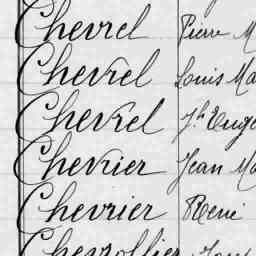 Chevrel Pierre M
Chevrel Louis Ma
Chevrel Jh Euge
Chevrier Jean Ma
Chevrier René
Chevrollier